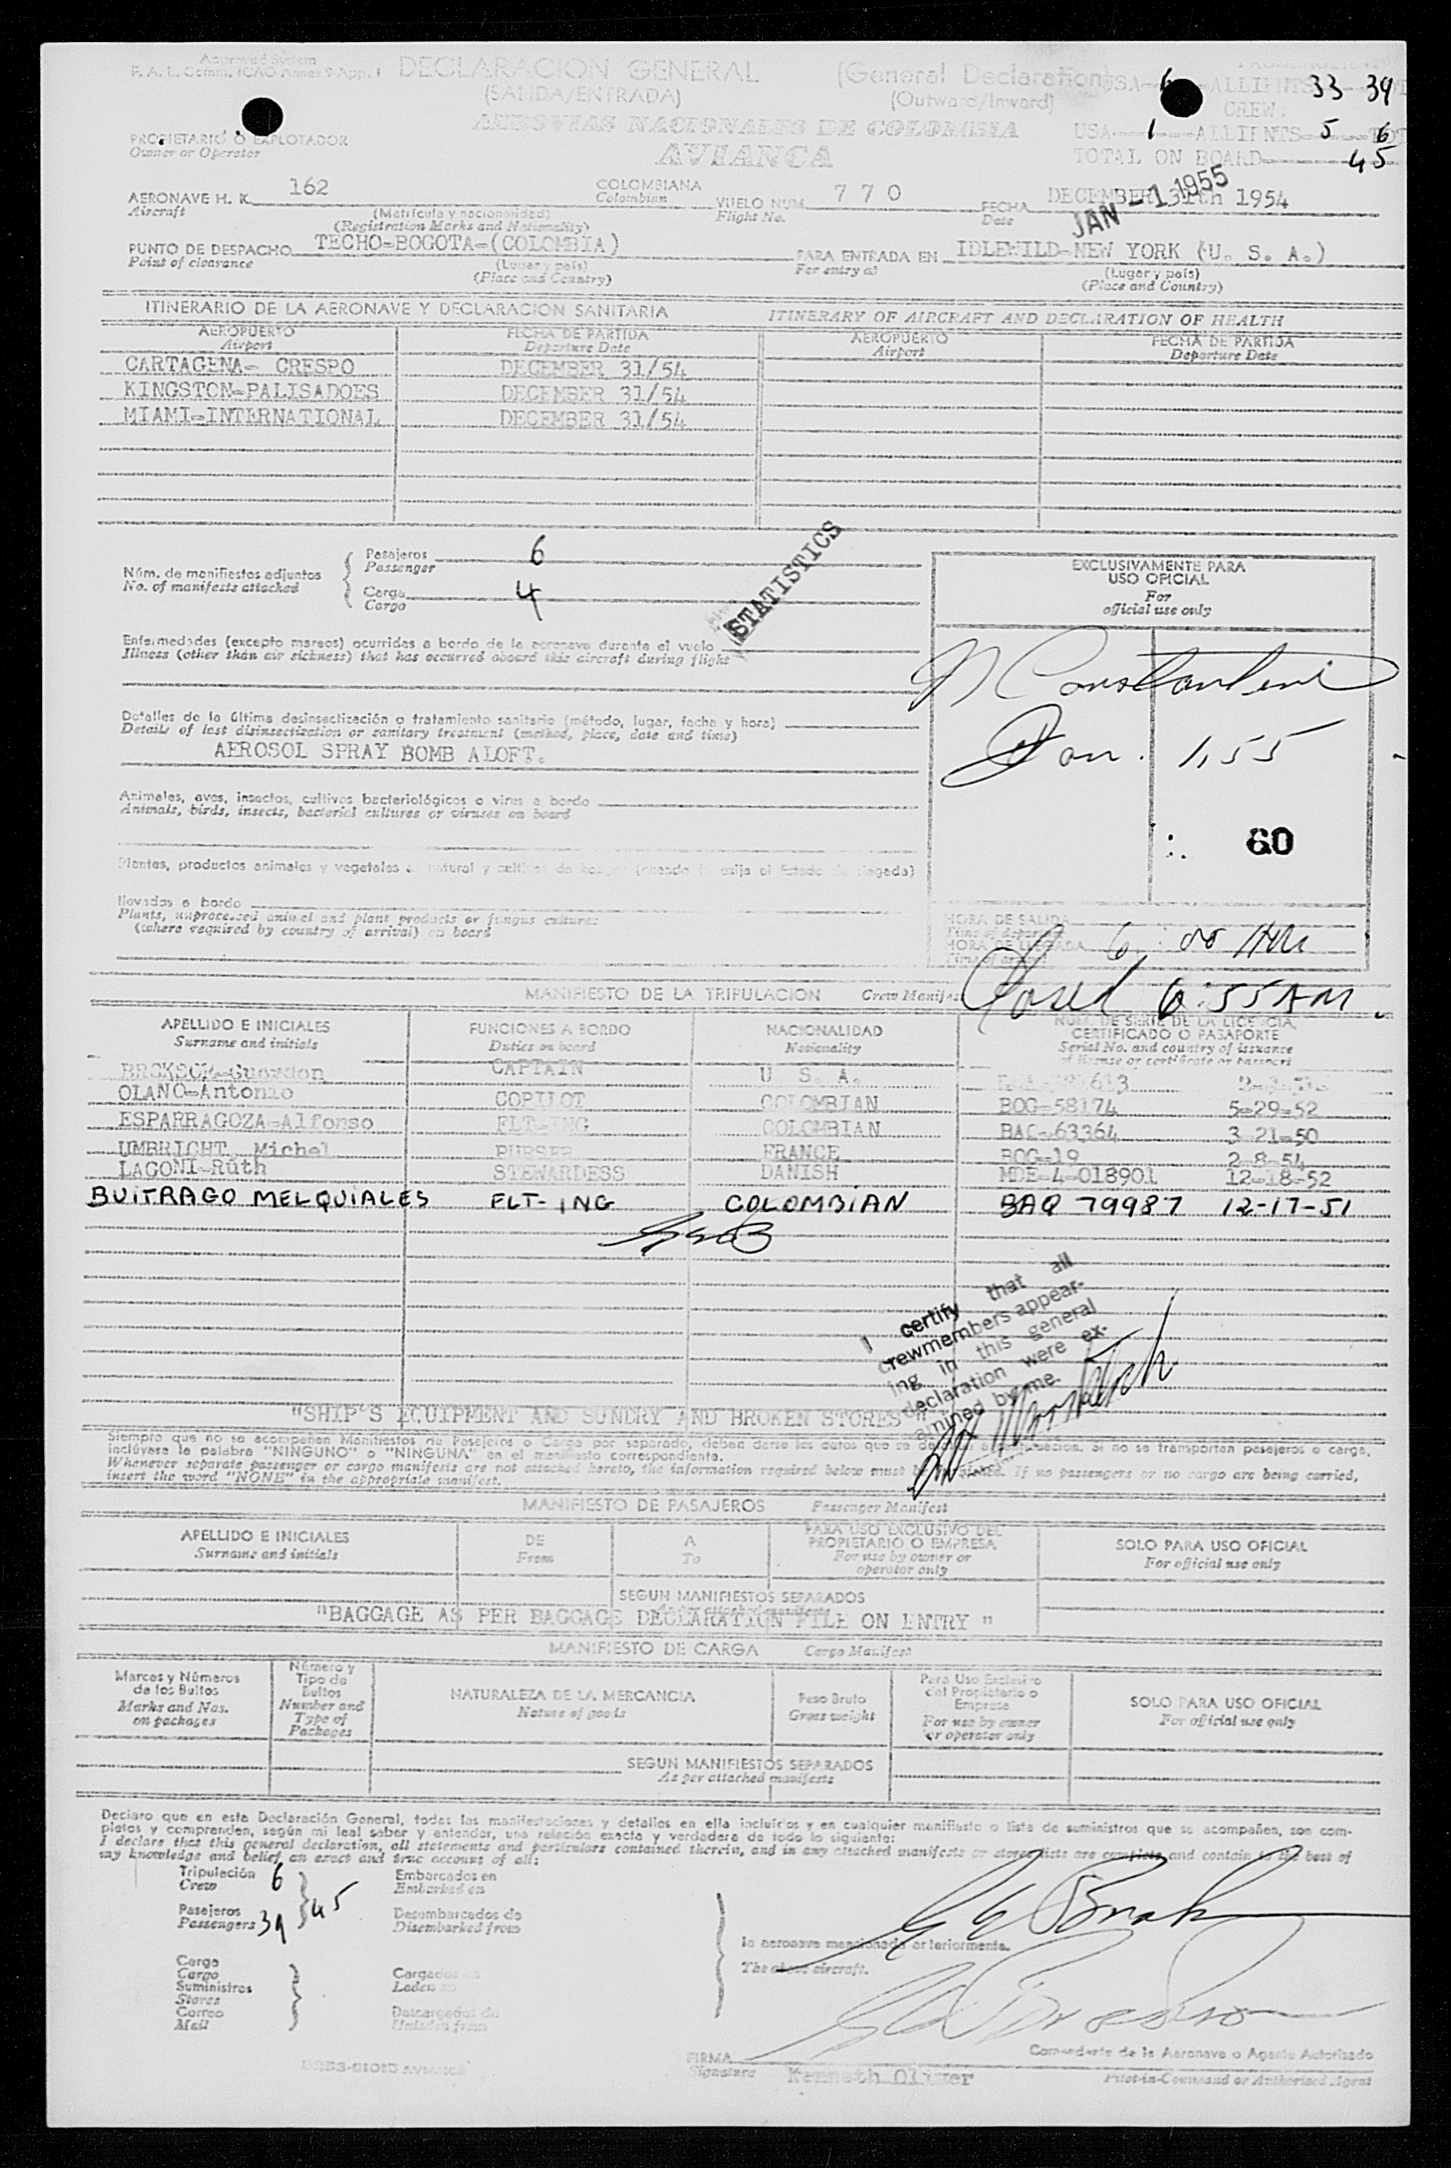 Approved System
F. A. L. Comm. ICAO Annex 9 App. 1
DECLARACION GENERAL (General Declaration)
(SALIDA/ENTRADA) (Outward/Inward)
AEROVIAS NACIONALES DE COLOMBIA
AVIANCA
USA- 6 ALLIENTS 33 39
CREW.
USA---- 1 ---ALLIENTS 5 6
TOTAL ON BOARD 45
PROPIETARIO O EXPLOTADOR
Owner or Operator
AERONAVE H. K. 162 COLOMBIANA VUELO NUM. 770 FECHA DECEMBER 31th 1954
Aircraft Colombian Flight No. Date
JAN - 1 1955
(Matrícula y nacionalidad)
(Registration Marks and Nationality)
PUNTO DE DESPACHO TECHO-BOGOTA-(COLOMBIA) PARA ENTRADA EN IDLEWILD-NEW YORK (U. S. A.)
Point of clearance For entry at
(Lugar y país) (Lugar y país)
(Place and Country) (Place and Country)
ITINERARIO DE LA AERONAVE Y DECLARACION SANITARIA ITINERARY OF AIRCRAFT AND DECLARATION OF HEALTH
AEROPUERTO FECHA DE PARTIDA AEROPUERTO FECHA DE PARTIDA
Airport Departure Date Airport Departure Date
CARTAGENA- CRESPO DECEMBER 31/54
KINGSTON-PALISADOES DECEMBER 31/54
MIAMI-INTERNATIONAL DECEMBER 31/54
Núm. de manifiestos adjuntos
No. of manifests attached
Pasajeros 6
Passenger
Carga 4
Cargo
STATISTICS
EXCLUSIVAMENTE PARA
USO OFICIAL
For
official use only
Enfermedades (excepto mareos) ocurridas a bordo de la aeronave durante el vuelo
Illness (other than air sickness) that has occurred aboard this aircraft during flight
Constantini
Jan. 1, 55
Detalles de la última desinsectización o tratamiento sanitario (método, lugar, fecha y hora)
Details of last disinsectization or sanitary treatment (method, place, date and time)
AEROSOL SPRAY BOMB ALOFT.
Animales, aves, insectos, cultivos bacteriológicos o virus a bordo
Animals, birds, insects, bacterial cultures or viruses on board
60
Plantas, productos animales y vegetales
llevados a bordo
Plants, unprocessed animal and plant products or fungus cultures
(where required by country of arrival) on board
HORA DE SALIDA
Time of departure
HORA DE LLEGADA 6:00 AM
Time of arrival
Closed 6:55 AM.
MANIFIESTO DE LA TRIPULACION Crew Manifest
APELLIDO E INICIALES FUNCIONES A BORDO NACIONALIDAD NUM. DE SERIE DE LA LICENCIA,
CERTIFICADO O PASAPORTE
Surname and initials Duties on board Nationality Serial No. and country of issuance
of license or certificate or passport
CAPTAIN U. S. A.
OLANO-Antonio COPILOT COLOMBIAN BOG-58174 5-29-52
ESPARRAGOZA-Alfonso FLT-ING COLOMBIAN BAC-63364 3-21-50
UMBRICHT, Michel PURSER FRANCE BOG-19 2-8-54
LAGONI-Ruth STEWARDESS DANISH MDE-4-018901 12-18-52
BUITRAGO MELQUIALES FLT-ING COLOMBIAN BAQ 79987 12-17-51
I certify that all
crewmembers appear-
ing in this general
declaration were ex-
amined by me.
"SHIP'S EQUIPMENT AND SUNDRY AND BROKEN STORES"
Siempre que no se acompañen Manifiestos de Pasajeros o Carga por separado, deben darse los datos que se detallan a continuación. Si no se transportan pasajeros o carga,
inclúyase la palabra "NINGUNO" o "NINGUNA" en el manifiesto correspondiente.
Whenever separate passenger or cargo manifests are not attached hereto, the information required below must be furnished. If no passengers or no cargo are being carried,
insert the word "NONE" in the appropriate manifest.
MANIFIESTO DE PASAJEROS Passenger Manifest
APELLIDO E INICIALES DE A PARA USO EXCLUSIVO DEL
PROPIETARIO O EMPRESA SOLO PARA USO OFICIAL
Surname and initials From To For use by owner or
operator only For official use only
SEGUN MANIFIESTOS SEPARADOS
As per attached manifests
"BAGGAGE AS PER BAGGAGE DECLARATION FILE ON ENTRY "
MANIFIESTO DE CARGA Cargo Manifest
Marcas y Números
de los Bultos
Marks and Nos.
on packages
Número y
Tipo de
Bultos
Number and
Type of
Packages
NATURALEZA DE LA MERCANCIA
Nature of goods
Peso Bruto
Gross weight
Para Uso Exclusivo
del Propietario o
Empresa
For use by owner
or operator only
SOLO PARA USO OFICIAL
For official use only
SEGUN MANIFIESTOS SEPARADOS
As per attached manifests
Declaro que en esta Declaración General, todas las manifestaciones y detalles en ella incluidos y en cualquier manifiesto o lista de suministros que se acompañen, son com-
pletos y comprenden, según mi leal saber y entender, una relación exacta y verdadera de todo lo siguiente:
I declare that this general declaration, all statements and particulars contained therein, and in any attached manifests or stores lists are complete and contain to the best of
my knowledge and belief, an exact and true account of all:
Tripulación 6 Embarcados en
Crew Embarked on
45
Pasajeros 39 Desembarcados de
Passengers Disembarked from
la aeronave mencionada anteriormente.
The above aircraft.
Carga
Cargo
Suministros
Stores
Correo
Mail
Cargados en
Laden on
Descargados de
Unladen from
FIRMA
Signature
Kenneth Oliver
Comandante de la Aeronave o Agente Autorizado
Pilot-in-Command or Authorized Agent